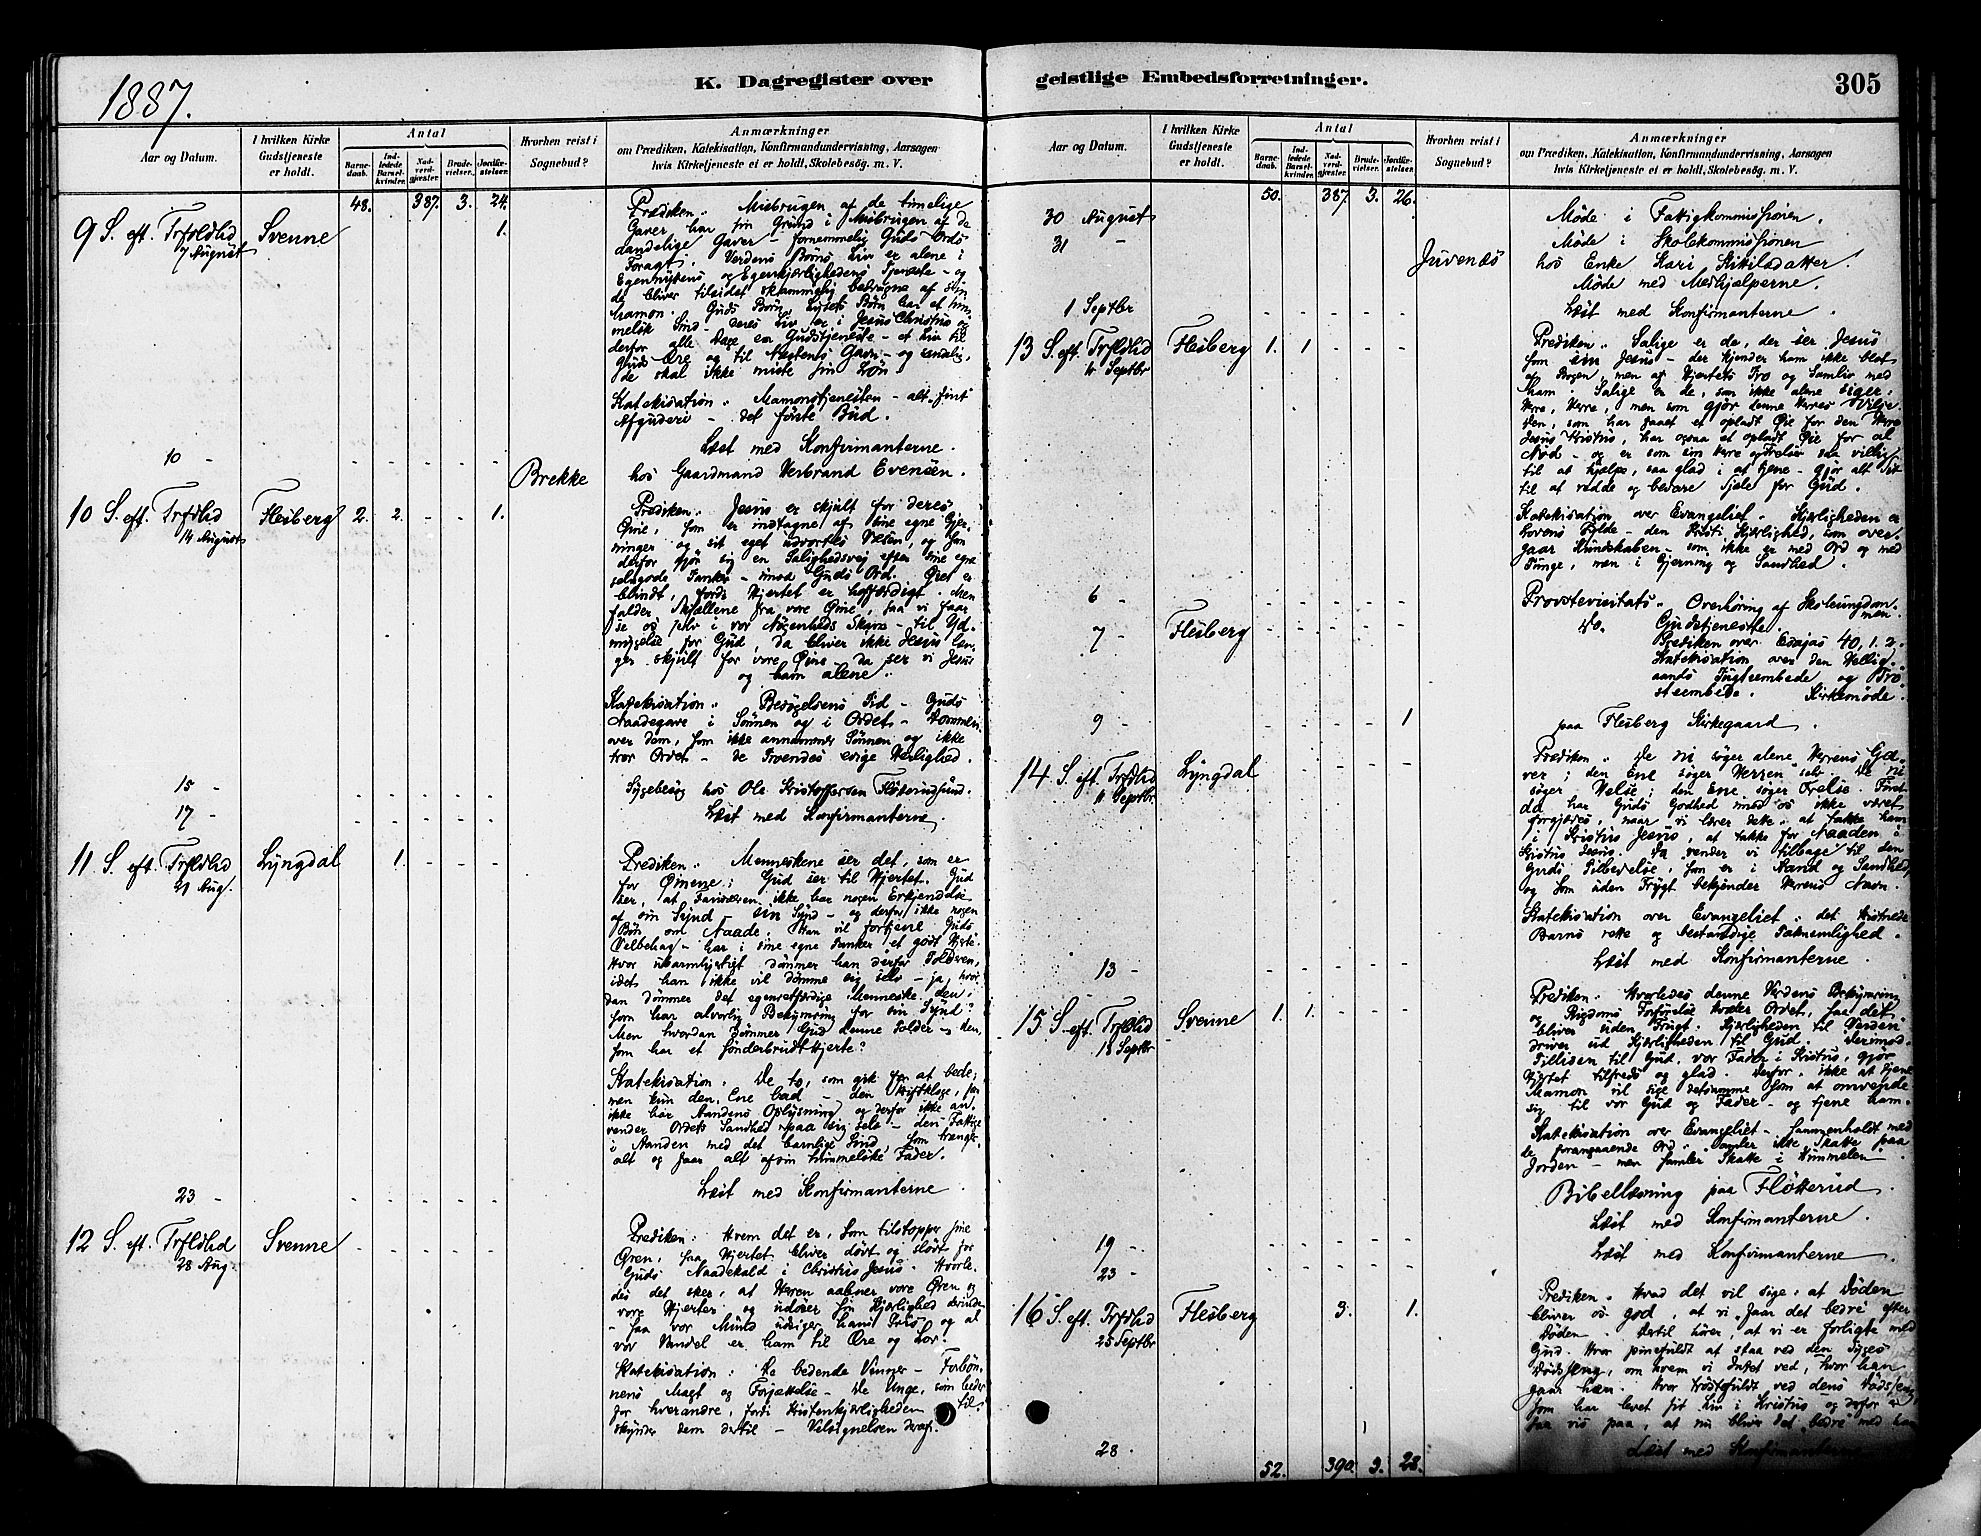 1887.
K. Dagregister over
Aar og Datum.
I hvilken Kirke
Gudstjeneste
er holdt.
Antal
Barne-
daab.
Ind-
ledede
Barsel-
kvinder.
Nad-
verd-
gjæster.
Brude-
vielser.
Jordfæ-
stelser.
Hvorhen reist i
Sognebud?
Anmærkninger
om Prædiken, Katekisation, Konfirmandundervisning, Aarsagen
hvis Kirketjeneste ei er holdt, Skolebesøg. m. V.
48. 387. 3. 24.
9 S. eft. Trfoldhd Svenne 1.
7 August
Prædiken: Misbrugen af de timelige
Gaver har sin Grund i Misbrugen af de
aandelige Gaver – fornemmelig Guds Ords
Foragt. Verdens Børns Liv er alene i
Egennyttens og Egenkjærlighedens Tjeneste – og
de bliver tilsidst skammelig bedragne af sin
Mamon. Guds Børn, Lysets Børn har et him-
melsk Sind – deres Liv er i Jesus Christus og
derfor alle Dage en Gudstjeneste – et Liv til
Guds Ære og til Næstens Gavn – og
de skal ikke miste sin Løn.
Katekisation: Mamonstjenesten – alt fint
Afguderi – det første Bud.
10 -
Læst med Konfirmanterne.
Brekke hos Gaardmand Herbrand Evensen.
10 S. eft. Trfdhd Flesberg 2. 2. - - 1.
14 August
Prædiken: Jesus er skjult for deres
Øine, som er indtagne af sine egne Gjer-
ninger og sit eget udvortes Væsen, og som
derfor gjør sig en Salighedsvej efter sine egne
selvgode Tanker – imod Guds Ord. Øiet er
blindt, fordi Hjertet er hoffærdigt. Men
falder Skjællene fra vore Øine, saa vi faar
se os selv i vor Nøgenheds Skam – til Yd-
mygelse for Gud, da bliver ikke Jesus læn-
ger skjult for vore Øine – da ser vi Jesus
og ham alene.
Katekisation: Besøgelsens Tid – Guds
Naadegave i Sønnen og i Ordet – Dommen
over dem, som ikke annammer Sønnen og ikke
tror Ordet – de Troendes evige Herlighed.
15 -
Sygebesøg hos Ole Kristoffersen
17 -
Læst med Konfirmanterne.
11 S. eft. Trfldhd Lyngdal 1.
21 Aug.
Prediken: Menneskene ser det, som er
for Øinene; Gud ser til Hjertet. Gud
ser, at Farisæeren ikke har nogen Erkjendelse
af sin Synd – sin Synd – og derfor ikke nogen
Bøn om Naade. Han vil fortjene Guds
Velbehag – har i sine egne Tanker et godt Hjerte.
Hvor ubarmhjertigt dømmer han derfor Tolderen,
idet han ikke vil dømme sig selv – ja, hvor-
dan dømmer det egenretfærdige Menneske den,
som har alvorlig Bekymring for sin Synd?
Men hvordan dømmer Gud denne Tolder – den,
som har et sønderbrudt Hjerte?
Katekisation. De to, som gik for at bede;
men kun den Ene bad – den Skriftkloge, som
ikke har Aandens Oplysning og derfor ikke an-
vender Ordets Sandhed paa sig selv – den Fattige
i Aanden med det barnlige Sind, som trænger
alt og faar alt af sin himmelske Fader.
23 -
Læst med Konfirmanterne
12 S. eft. Trfldhd Svenne
28 Aug.
Prediken: Hvem det er, som tilstopper sine
Øren, saa Hjertet bliver døvt og dødt for
Guds Naadekald i Christus Jesus. Hvorle-
des det sker, at Herren aabner vore Øren og
vore Hjerter og udøser sin Kjærlighed derinde
– saa vor Mund udsiger hans Pris, og al
vor Vandel er ham til Ære og Lov.
Katekisation: De bedende Venner – Forbøn-
nens Magt og Forjættelse – De Unge, som beder
for hverandre, fordi Kristenkjærligheden
skynder dem dertil – Velsignelsen deraf.
geistlige Embedsforretninger.
305
Aar og Datum.
I hvilken Kirke
Gudstjeneste
er holdt.
Antal
Barne-
daab.
Ind-
ledede
Barsel-
kvinder.
Nad-
verd-
gjæster.
Brude-
vielser.
Jordfæ-
stelser.
Hvorhen reist i
Sognebud?
Anmærkninger
om Prædiken, Katekisation, Konfirmandundervisning, Aarsagen
hvis Kirketjeneste ei er holdt, Skolebesøg. m. V.
50. 387. 3. 26.
30 August
Møde i Fattigkommissionen.
31 -
Møde i Skolekommissionen
Juvenæs hos Enke Kari Kittilsdatter.
Møde med Medhjælperne.
1 Septbr
Læst med Konfirmanterne.
13 S. eft. Trfldhd Flesberg 1. 1
4 Septbr
Prediken: Salige er de, der ser Jesus
som sin Jesus – der kjender ham ikke blot
af Bogen, men af Hjertets Tro og Samliv med
ham. Salige er de, som ikke alene siger
Herre, Herre, men som gjør denne Herres Vilje.
Den, som har faaet et opladt Øie for den Herre
Jesus Kristus, har ogsaa et opladt Øie for al
Nød – og er som sin Herre og Frelser saa villig
til at hjælpe, saa glad i at tjene – gjør alt Sit
til at redde og bevare Sjele for Gud.
Katekisation over Evangeliet. Kjærligheden er
Lovens Fylde – den Kristi Kjærlighed, som over-
gaar Kundskaben – som ikke er med Ord og med
Tunge, men i Gjerning og Sandhed.
6 -
Provstevisitats. Overhøring af Skoleungdom-
men
7 - Flesberg
do. Gudstjeneste.
Prediken over Esajas 40, 1. 2.
Katekisation over den Hellig-
aands Tugtembede og Trø-
steembede. Kirkemøde.
9 - 1
paa Flesberg Kirkegaard.
14 S. eft. Trfdhd Lyngdal
11 Septbr
Prediken. De ni søger alene Herrens Ga-
ver; den Ene søger Herren selv. De ni
søger Helse; den Ene søger Frelse. Først
da har Guds Godhed imod os ikke været
forgjæves, naar vi lærer dette: at takke ham
i Kristus Jesus, at takke for Naaden i
Kristus Jesus. Da vender vi tilbage til den
Guds Tilbedelse, som er i Aand og Sandhed,
og som uden Frygt bekjender Herrens Navn.
Katekisation over Evangeliet: det kristnede
Barns rette og bestandige Taknemlighed.
13 -
Læst med Konfirmanterne.
15 S. eft. Trfldhd Svenne 1. 1.
18 Septbr
Prediken: Hvorledes denne Verdens Bekymring
og Rigdoms Forførelse kvæler Ordet, saa det
bliver uden Frugt. Kjærligheden til Verden
driver ud Kjærligheden til Gud. Derimod
Tilliden til Gud, vor Fader i Kristus, gjør
Hjertet tilfreds og glad. Derfor: ikke at tjene
Mamon vil sige detsamme som at omvende
sig til vor Gud og Fader – og tjene ham.
Katekisation over Evangeliet – sammenholdt med
de foregaaende Ord: Samler ikke Skatte paa
Jorden – men samler Skatte i Himmelen.
Bibellæsning paa Fløtterud.
19 -
Læst med Konfirmanterne.
23 -
Læst med Konfirmanterne
16 S. eft. Trfdhd Flesberg 3. 1.
25 Septbr
Prediken. Hvad det vil sige, at Døden
bliver os god, at vi faar det bedre efter
Døden. Dertil hører, at vi er forligte med
Gud. Hvor pinefuldt at staa ved den Syges
Dødsseng, om hvem vi Intet ved, hvor han
gaar hen. Hvor trøstefuldt ved dens Dødsseng
som har levet sit Liv i Kristus og derfor er
saa vis paa, at nu bliver det bedre med ham
28 -
Læst med Konfirmanterne
52. 390. 3. 28.